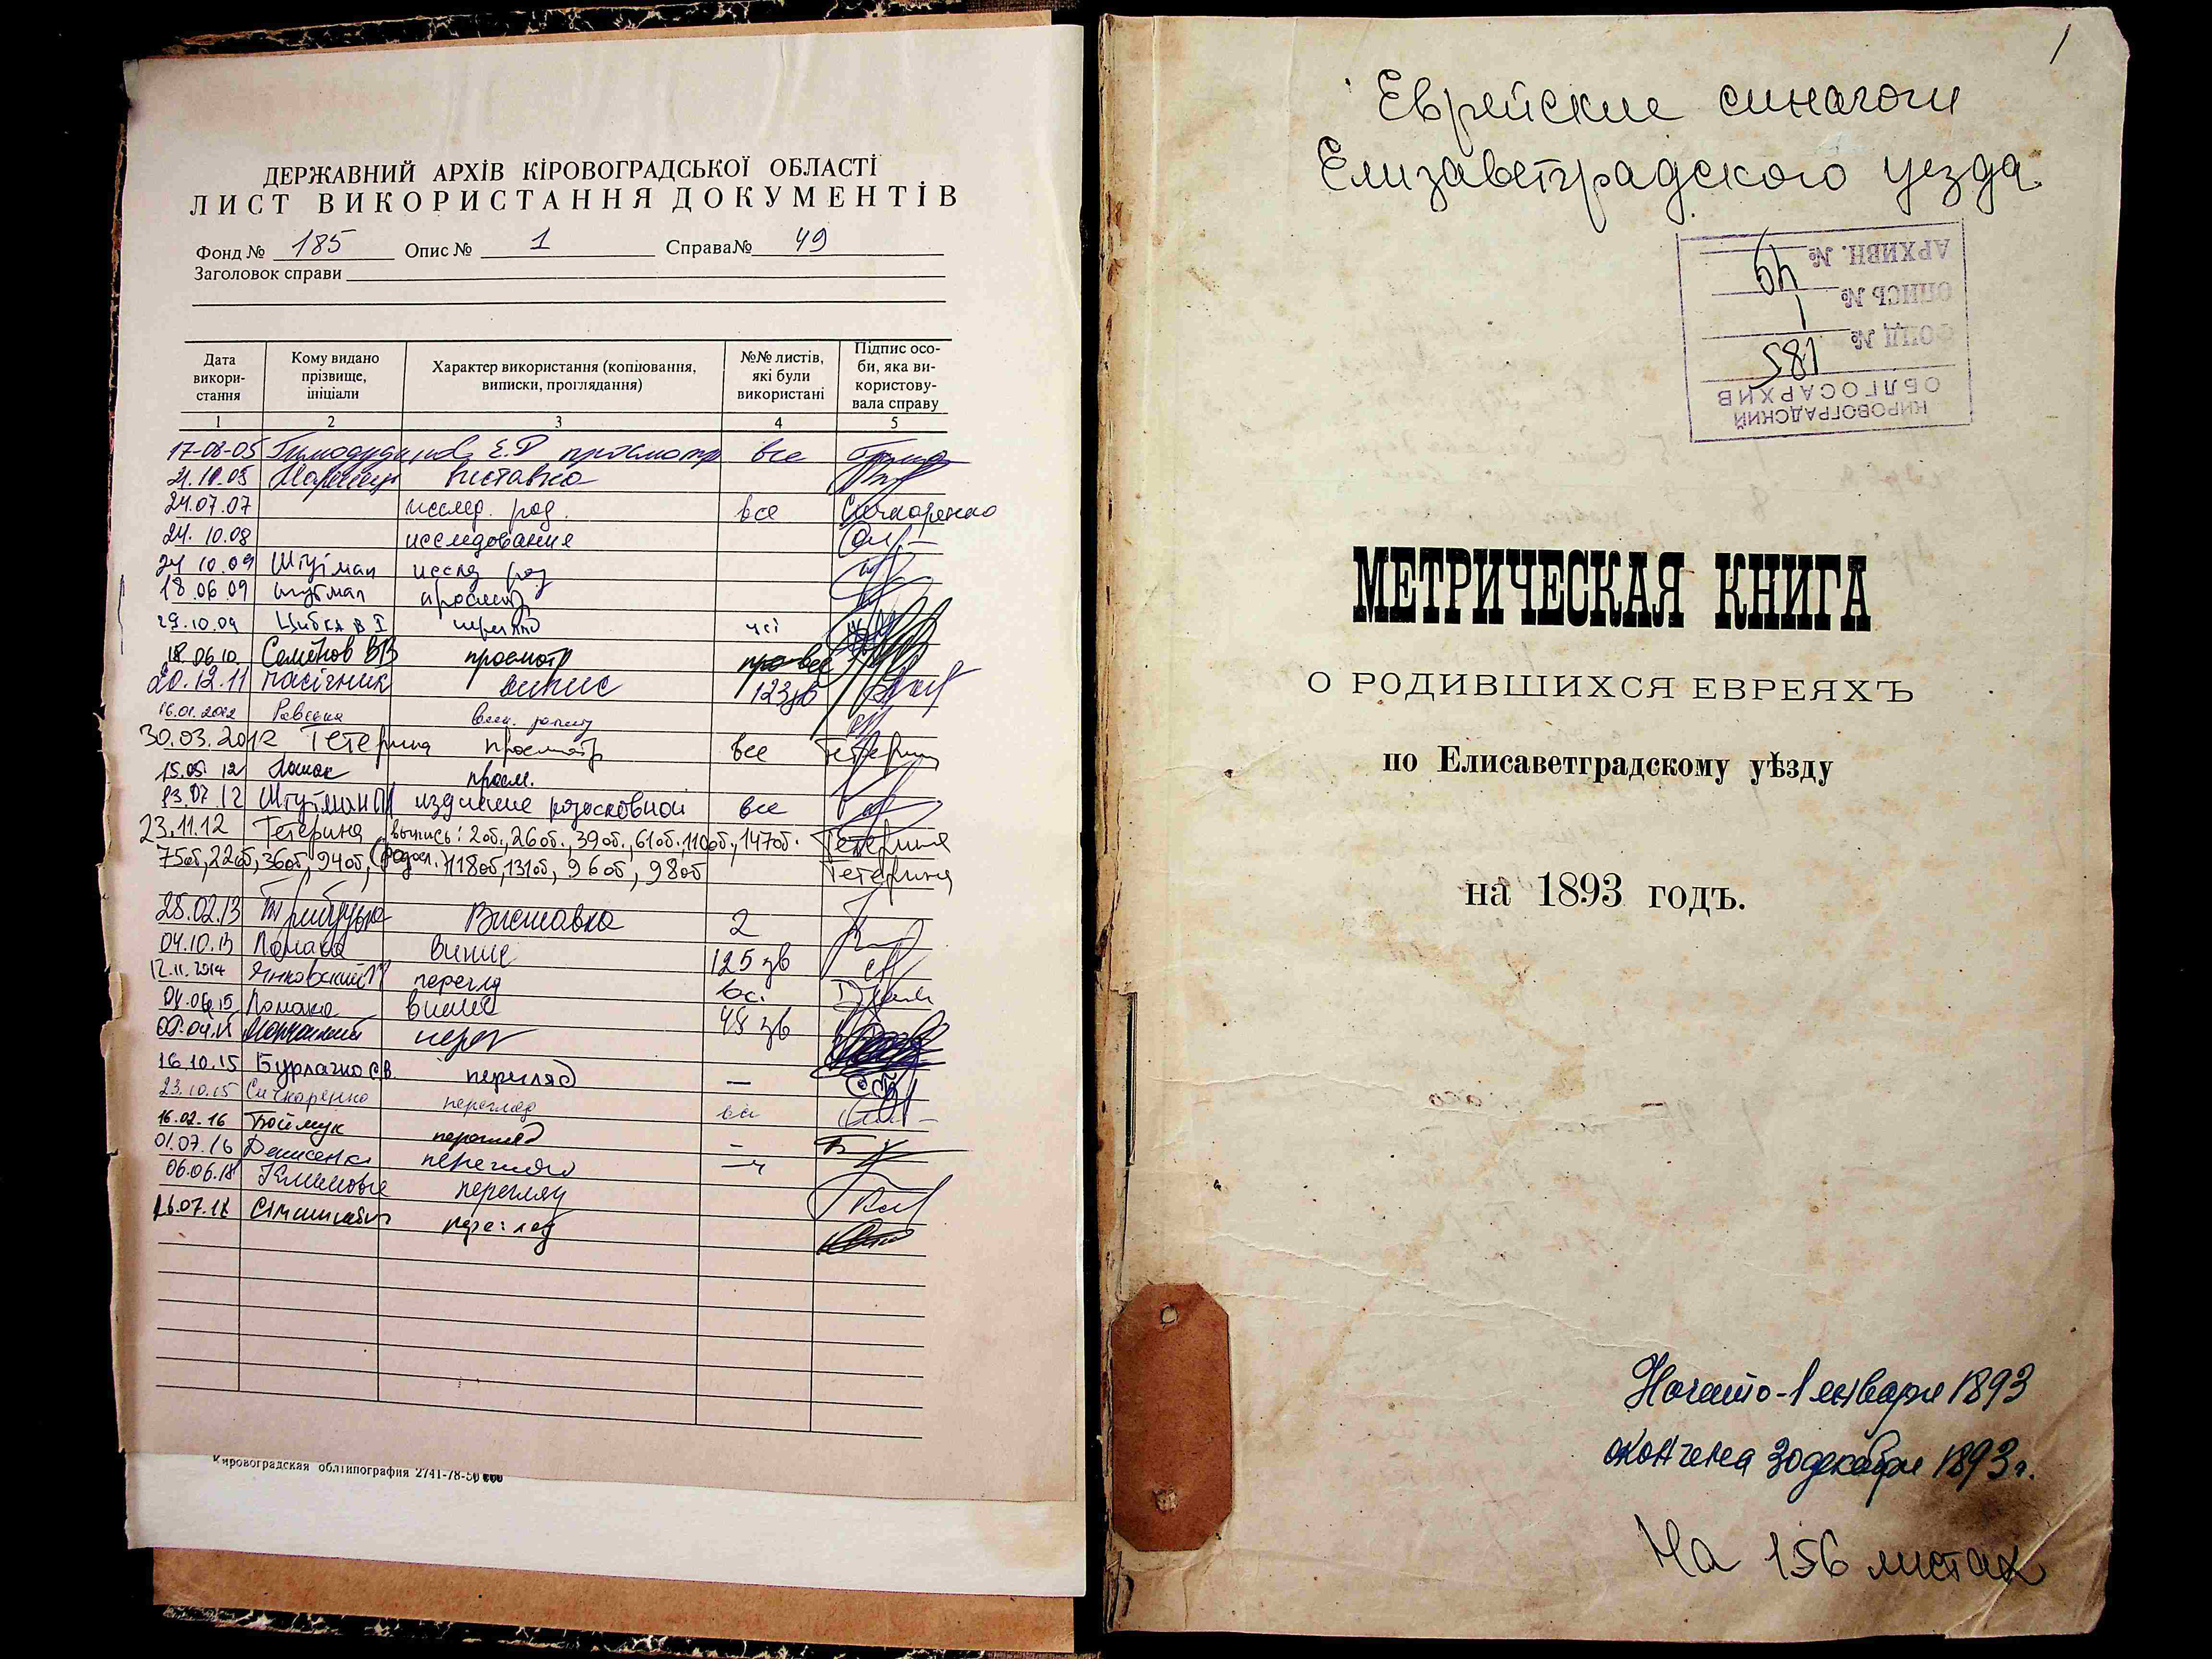 ДЕРЖАВНИЙ АРХІВ КІРОВОГРАДСЬКОЇ ОБЛАСТІ
ЛИСТ ВИКОРИСТАННЯ ДОКУМЕНТІВ
Фонд № 185 Опис № 1 Справа№ 49
Заголовок справи
Дата використання
Кому видано прізвище, ініціали
Характер використання (копіювання, виписки, проглядання)
№№ листів, які були використані
Підпис особи, яка використовувала справу
1 2 3 4 5
17-08-05 Е.Д просмотр все
21.10.05 виставка
24.07.07 исслед. род. все Сичкаренко
24.10.08 исследование
24 10.09 Штутман исслед род
18.06.09 штутман просмотр
29.10.09 перегляд усі
18.06.10 Семёнов ВВ просмотр все
20.12.11 Пасічник випис 123зв
16.01.2012
30.03.2012 Тетерина просмотр все Тетерина
15.05 12 просм.
13.07.12 Штутман все
23.11.12 Тетерина выпись: 2об., 26об., 39об., 61об., 110об., 147об. Тетерина
75об, 22об, 36об, 94об, (родосл.) 118об, 131об, 96об, 98об Тетерина
28.02.13 Виставка 2
04.10.13 Ломака випис 125 зв
12.11.2014 Янковский перегляд вс.
04.06.15 Ломака випис 48 зв
перег
16.10.15 Бурлачко С.В. перегляд —
23.10.15 Сичкаренко перегляд всі
16.02.16 Боймук перегляд –
01.07.16 Денисенко перегляд
06.06.18 перегляд
16.07.18 перегляд
Кировоградская облтипография 2741-78-50 000
1
Еврейские синагоги
Елизаветградского уезда
КИРОВОГРАДСКИЙ
ОБЛГОСАРХИВ
ФОНД № 185
ОПИСЬ № 1
АРХИВН. № 49
МЕТРИЧЕСКАЯ КНИГА
О РОДИВШИХСЯ ЕВРЕЯХЪ
по Елисаветградскому уѣзду
на 1893 годъ.
Начато - 1 января 1893
окончена 30 декабря 1893 г.
На 156 листах